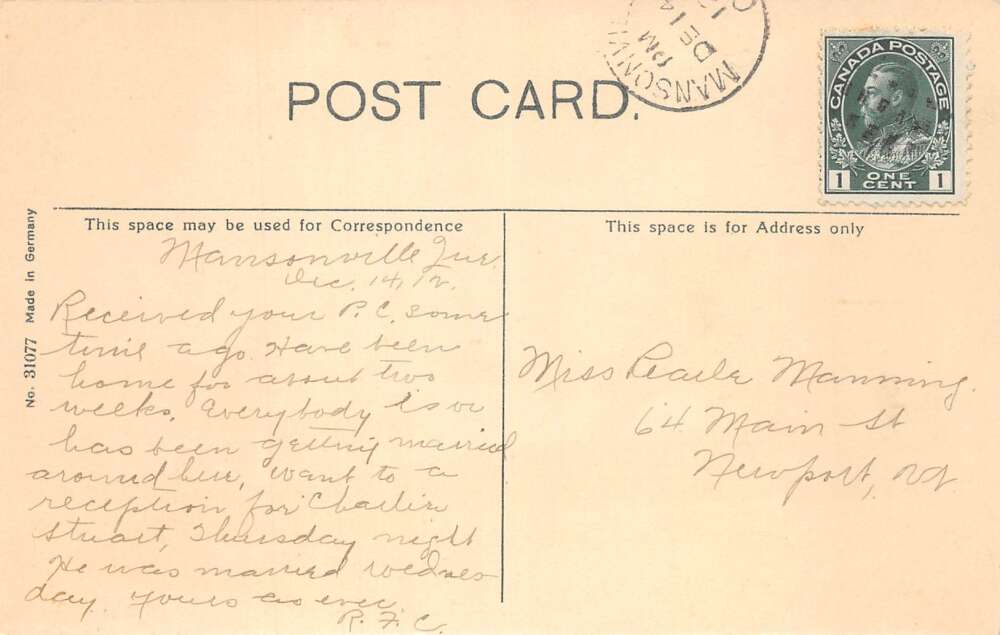 POST CARD.
MANSONVI
PM
DE 14
CANADA POSTAGE
1 ONE CENT 1
This space may be used for Correspondence
This space is for Address only
No. 31077 Made in Germany
Mansonville Que.
Dec. 14, 12.
Received your P.C. some
time ago. Have been
home for about two
weeks. Everybody is or
has been getting married
around here, went to a
reception for Charlie
Stuart, Thursday night
He was married Wednes
day. Yours as ever
R. F. C.
Miss Manning.
64 Main St
Newport, Vt.